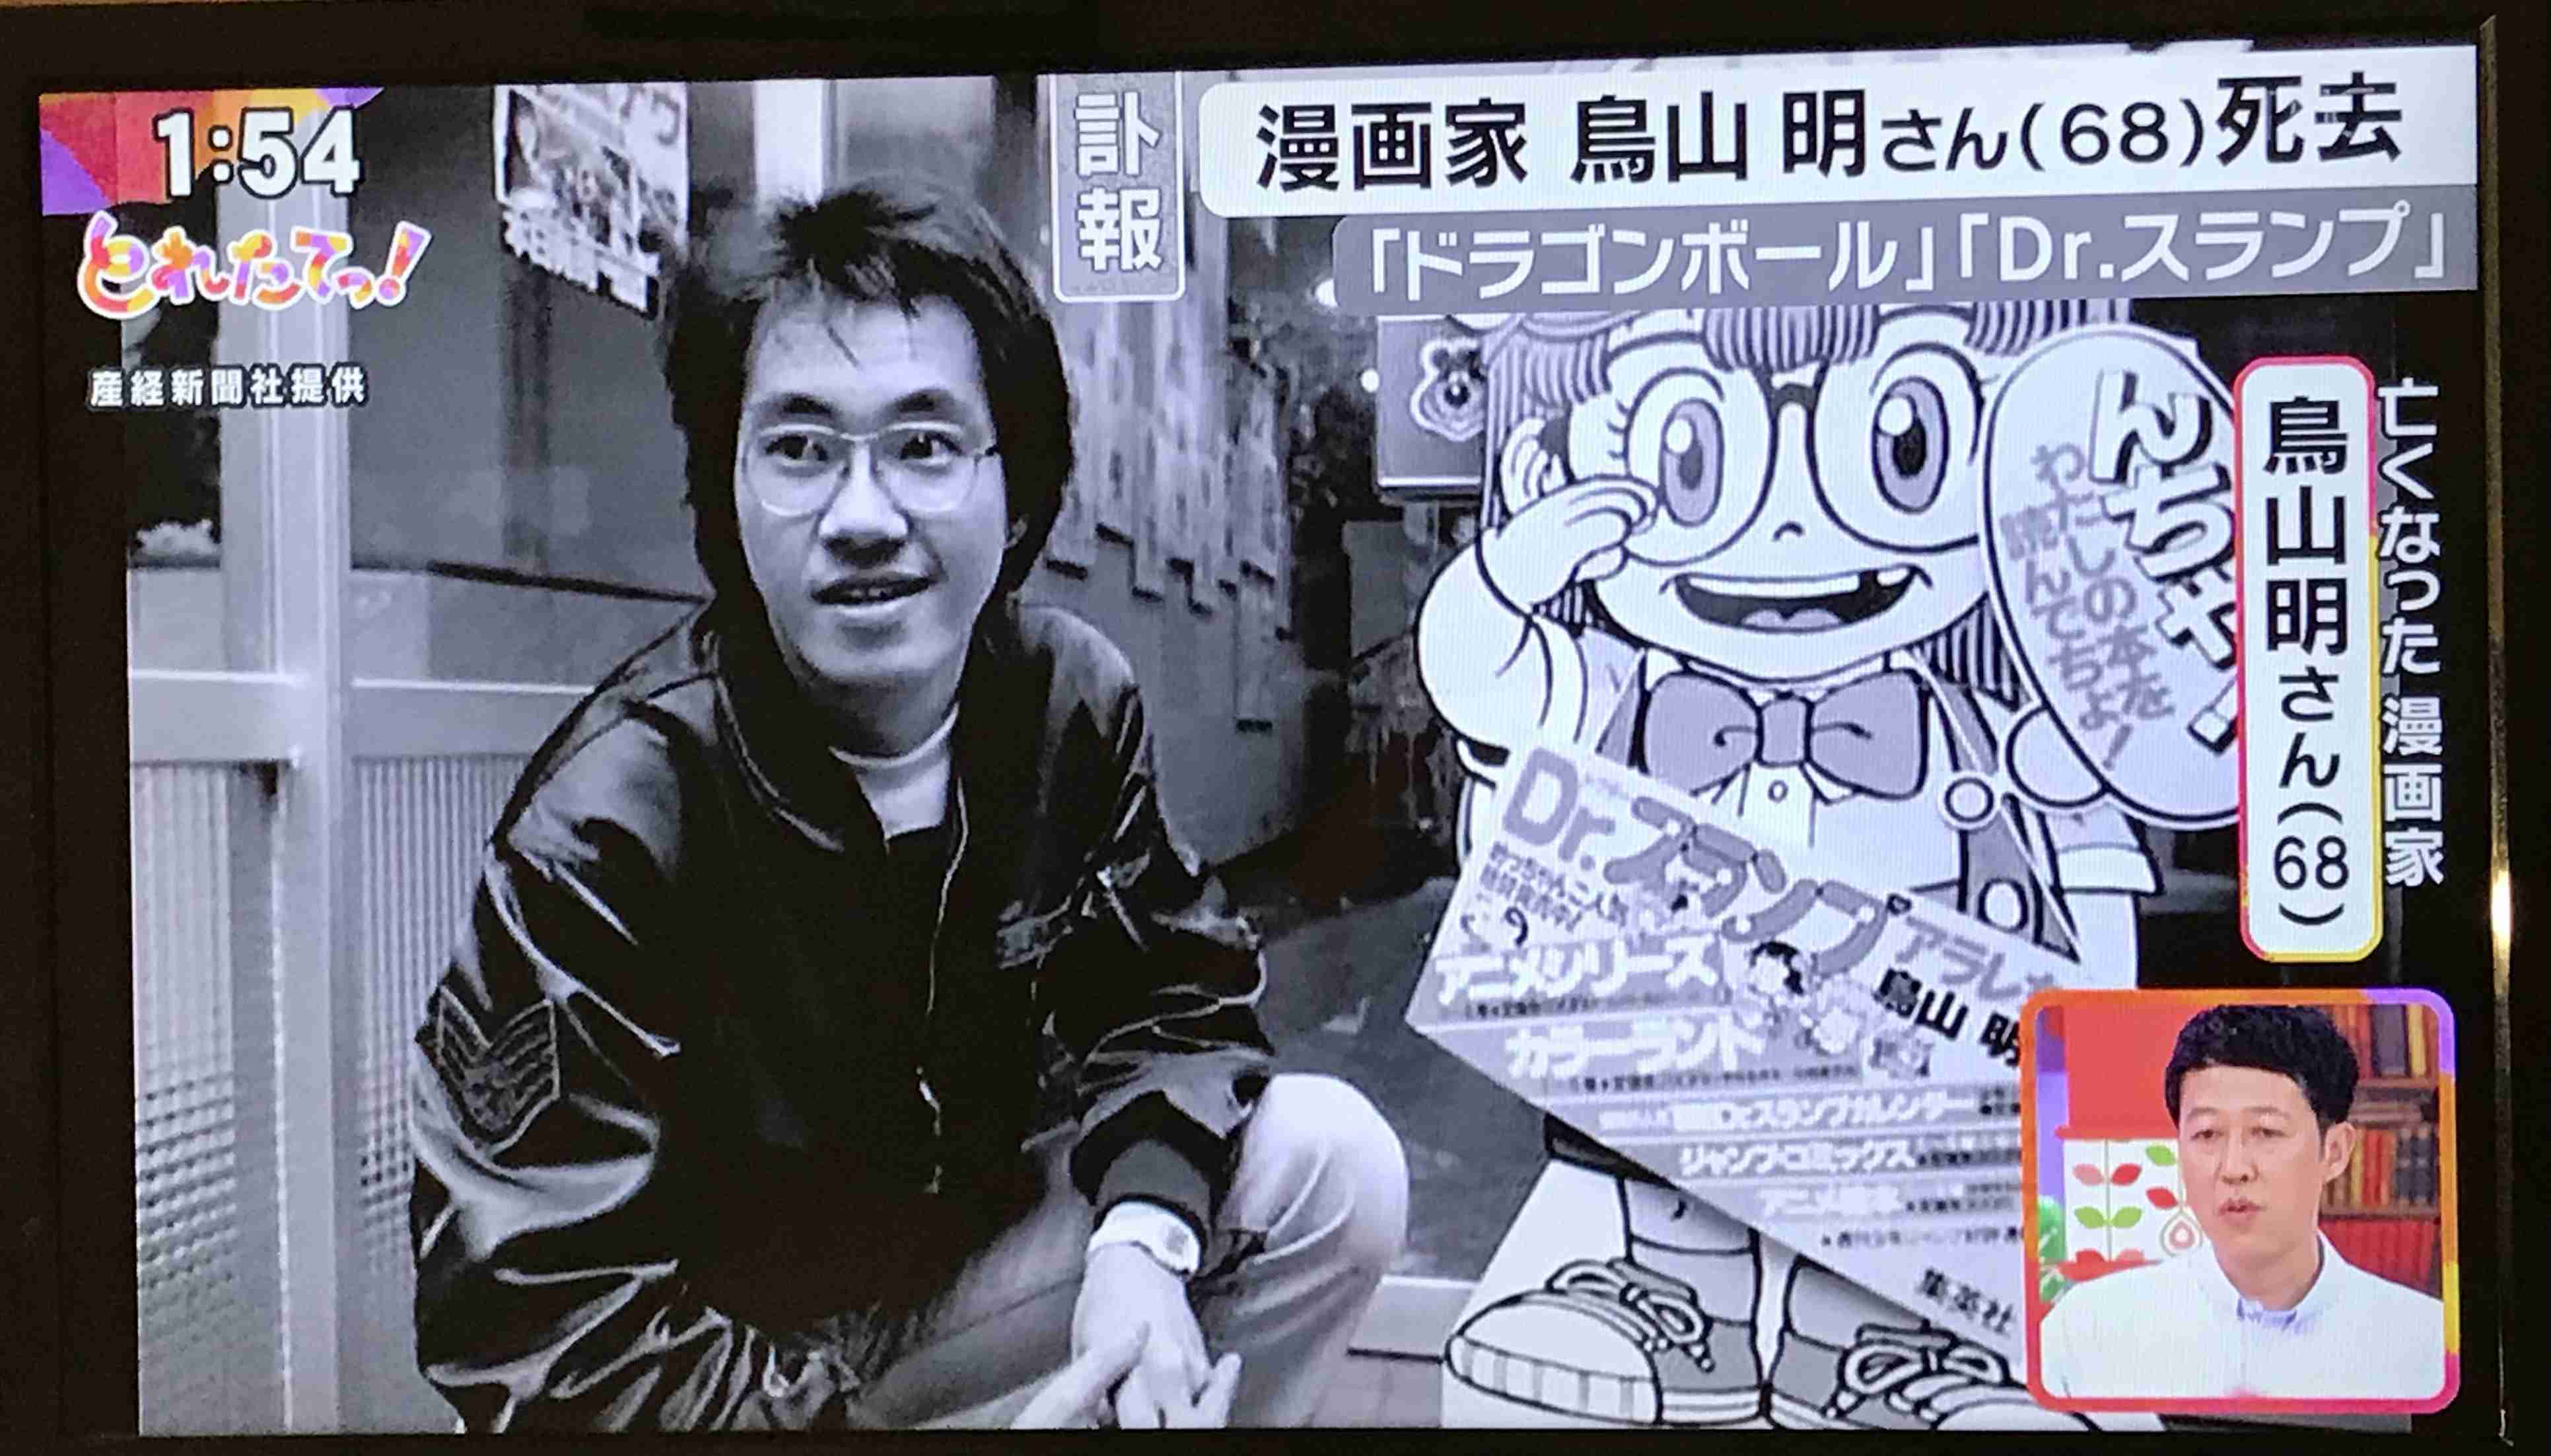 1:54
とれたてっ!
産経新聞社提供
訃報
漫画家 鳥山 明さん(68)死去
「ドラゴンボール」「Dr.スランプ」
亡くなった 漫画家
鳥山明さん(68)
んちゃ!
わたしの本を
読んでちょ!
Dr.スランプ
アラレ
鳥山 明
アニメシリーズ
カラーランド
Dr.スランプカレンダー
ジャンプ・コミックス
集英社